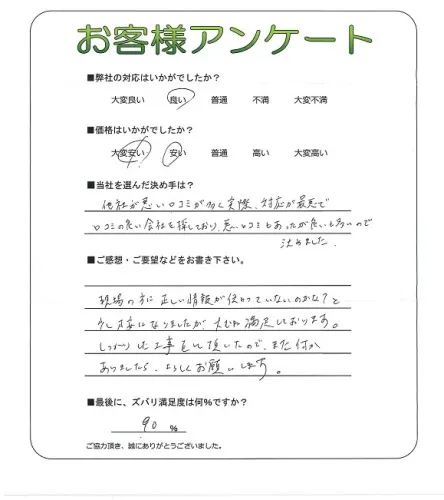 お客様アンケート
■弊社の対応はいかがでしたか?
大変良い 良い 普通 不満 大変不満
■価格はいかがでしたか?
大変安い 安い 普通 高い 大変高い
■当社を選んだ決め手は?
他社が悪い口コミが多く実際、対応が最悪で
口コミの良い会社を探しており、悪い口コミもあったが良いも多いので
決めました。
■ご感想・ご要望などをお書き下さい。
現場の方に正しい情報が伝わっていないのかな?と
少し不安になりましたが、大むね満足しております。
しっかりした工事をして頂いたので、また何か
ありましたら、よろしくお願いします。
■最後に、ズバリ満足度は何%ですか?
90 %
ご協力頂き、誠にありがとうございました。